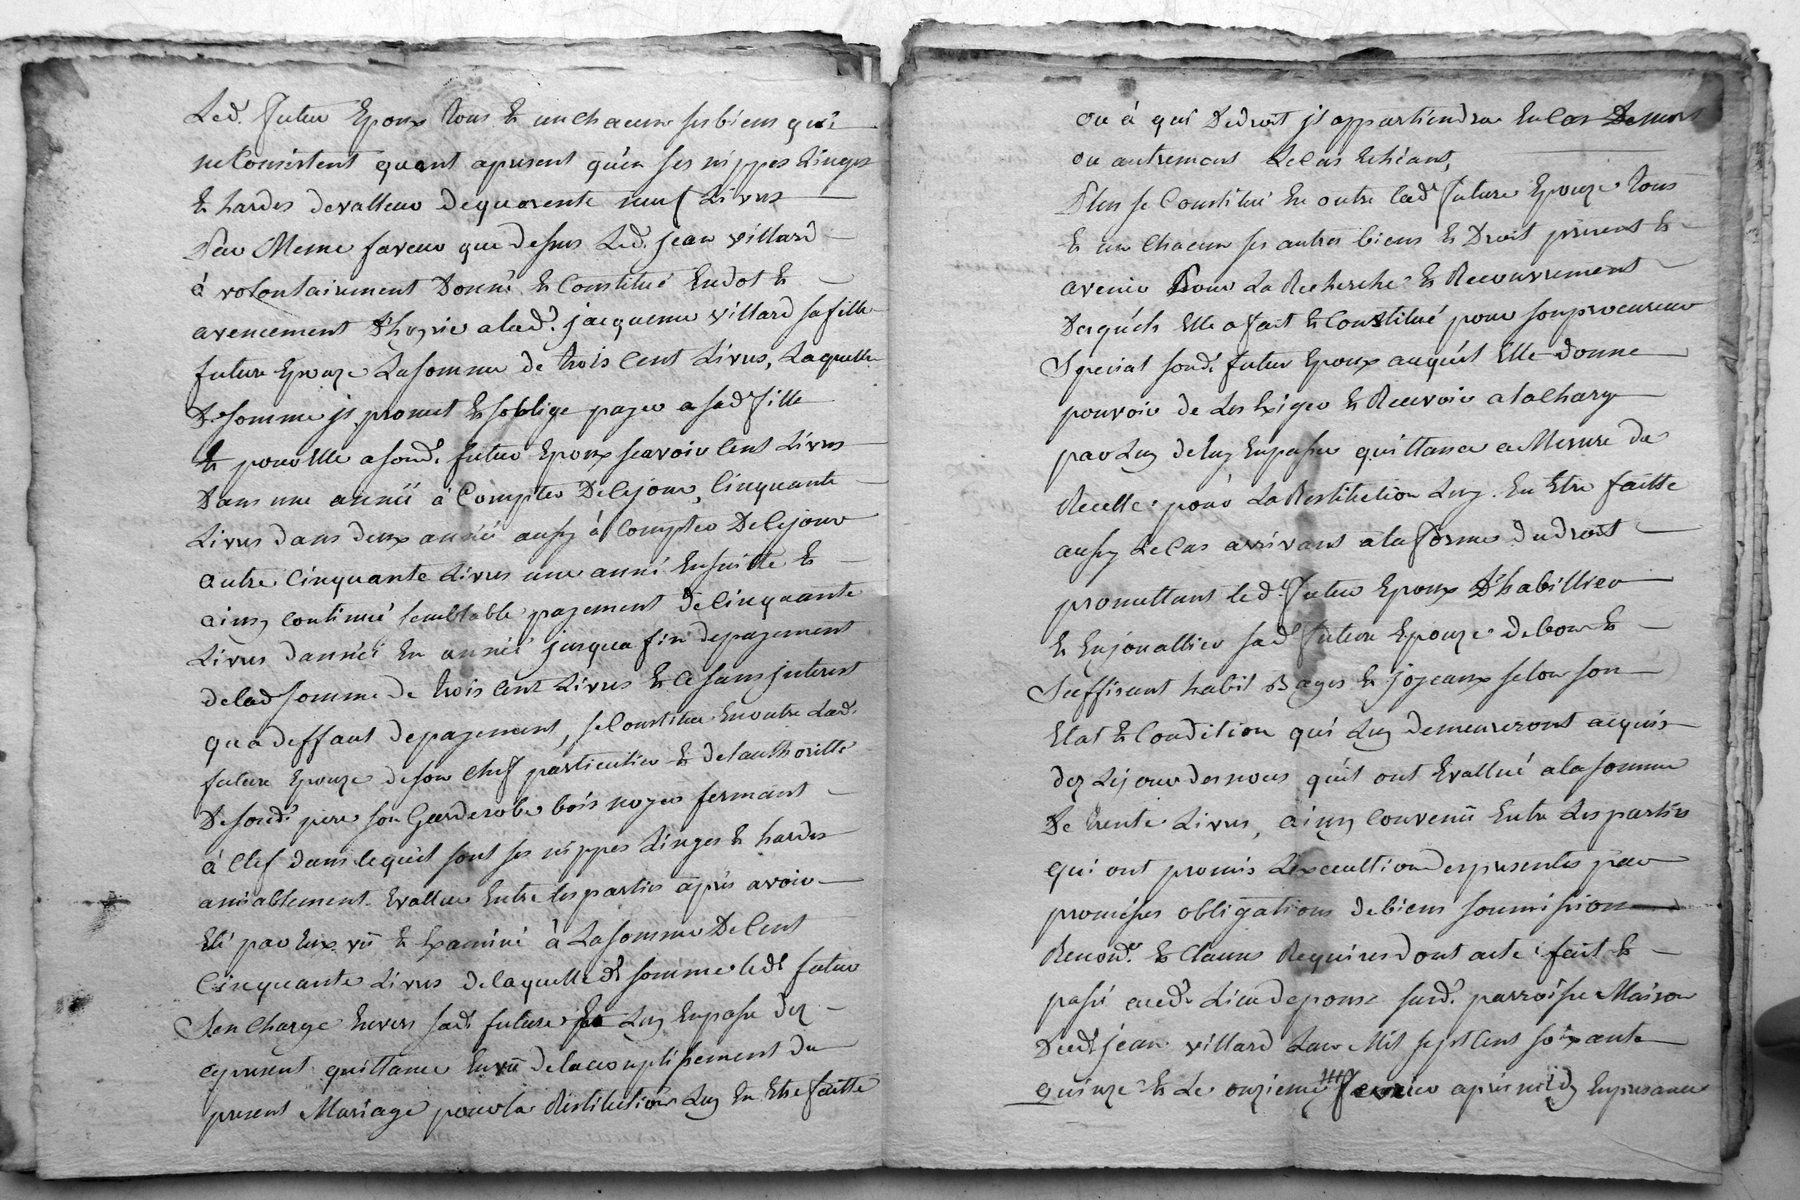 Led. futur Epoux tous Et un chacuns ses biens qui
ne Consistent quant apresent qu'en ses nippes Linges
Et hardes devalleur dequarente neuf Livres
Par Meme faveur que dessus Led. jean villard
à volontairement Donné Et Constitué Endot Et
avencement D'hoyrie alad. jacquema villard safille
future Epouze Lasomme de trois Cent Livres, Laquelle
D. somme jl promet Et soblige payer a sad fille
Et pour Elle a sond. futur Epoux scavoir Cent Livres
Dans une année à Compter Decejour, Cinquante
Livres dans deux année aussy à compter Decejour
autre Cinquante Livres une anné Ensuitte Et
ainsy continué semblable payement deCinquante
Livres d'année En année jusqua fin depayement
delad somme de trois Cent Livres Et Ce sans jnterest
qu'a deffaut depayement, se Constitue Enoutre Lad.
future Epouze deson Chef particulier Et delauthoritté
Desond. pere son Garderobe bois noyer fermant
à Clef dans lequel sont ses nippes Linges Et hardes
amiablement Evallue Entre lesparties après avoir
Eté par Eux vû Et Examiné à Lasomme DeCent
Cinquante Livres delaquelle d. somme led. futur
sen Charge Envers sad. future Luy Enpasse dez
apresent quittance Envû delacomplissement du
present Mariage pour la Restitution Luy En Etre faitte
ou á qui Dedroit jl appartiendra En Cas Demort
ou autrement Le Cas Echéant,
Plus se Constitue En outre lad. future Epouze tous
Et un Chacun ses autres biens Et Droit présent Et
avenir Pour La Recherche Et Recouvrement
Desquéls Elle a fait Et Constitué pour sonprocureur
Special sond. futur Epoux auquél Elle donne
pouvoir de Les Exiger Et Recevoir a lacharge
par Luy deluy Enpasser quittance a Mesure de
Recette pour La Restitution Luy En Etre faitte
aussy Le Cas arrivant a la forme du droit
promettant led. futur Epoux D'habillier
Et Enjouallier sad. future Epouze debon Et
Suffisant habit Bagues Et joyeaux selon son
Etat Et Condition qui Luy demeureront acquis
dez Lejour des nous qu'il ont Evallué alasomme
De trente Livres, ainsy Convenû Entre Lesparties
Qui ont promis Lexecultion despresentes par
promésses obligations debiens soumission
Renond. Et Clauses Requises dont acte: fait Et
passé aud. Lieu deponse sud. parroisse Maison
Dud. jean villard Lan Mil sept Cent soixante
quinze Et Le onzieme fevrier après midy Enpresance